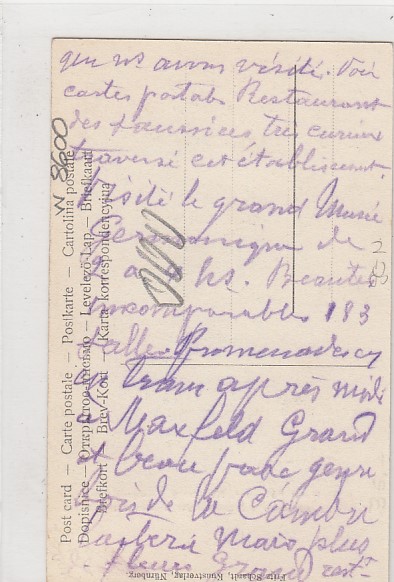 que ns avons visité. Voir
cartes postales Restaurant
des saucisses très curieux
traversé cet établissement.
Visité le grand Musée
Germanique de
à hs. Beautés
incomparables 183
salles. Promenades
en Tram après midi
à Maxfeld Grand
et beau parc genre
bois de la Cambre
mais plus
fleuri Grand rest.
W 8600
Post card — Carte postale — Postkarte — Cartolina postale
Dopisnice — Открытое письмо — Levelező-Lap — Briefkaart
Brefkort — Brev-Kort — Karta korrespondencyjna
Fritz Schaadt, Kunstverlag, Nürnberg.